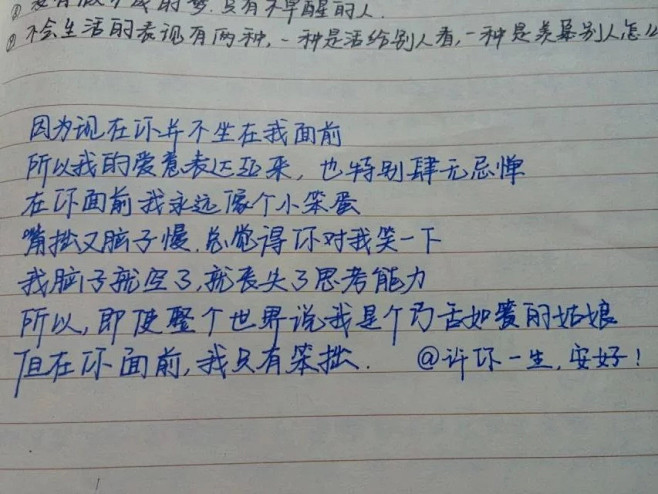 没有做不成的梦,只有不早醒的人.
② 不会生活的表现有两种,一种是活给别人看,一种是羡慕别人怎么
因为现在你并不坐在我面前
所以我的爱意表达起来,也特别肆无忌惮
在你面前我永远像个小笨蛋
嘴拙又脑子慢.总觉得你对我笑一下
我脑子就空了,就丧失了思考能力
所以,即使整个世界说我是个巧舌如簧的姑娘
但在你面前,我只有笨拙. @许你一生,安好!